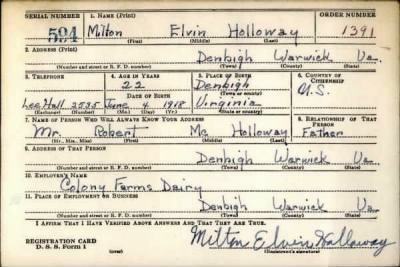 SERIAL NUMBER 1. NAME (Print) ORDER NUMBER
594 Milton Elvin Holloway 1391
(First) (Middle) (Last)
2. ADDRESS (Print)
Denbigh Warwick Va.
(Number and street or R. F. D. number) (Town) (County) (State)
3. TELEPHONE 4. AGE IN YEARS 5. PLACE OF BIRTH 6. COUNTRY OF CITIZENSHIP
22 Denbigh
DATE OF BIRTH (Town or county)
Lee Hall 2535 June 4 1918 Virginia U.S.
(Exchange) (Number) (Mo.) (Day) (Yr.) (State or country)
7. NAME OF PERSON WHO WILL ALWAYS KNOW YOUR ADDRESS 8. RELATIONSHIP OF THAT PERSON
Mr. Robert Mc Holloway Father
(Mr., Mrs., Miss) (First) (Middle) (Last)
9. ADDRESS OF THAT PERSON
Denbigh Warwick Va
(Number and street or R. F. D. number) (Town) (County) (State)
10. EMPLOYER'S NAME
Colony Farms Dairy
11. PLACE OF EMPLOYMENT OR BUSINESS
Denbigh Warwick Va.
(Number and street or R. F. D. number) (Town) (County) (State)
I AFFIRM THAT I HAVE VERIFIED ABOVE ANSWERS AND THAT THEY ARE TRUE.
REGISTRATION CARD
D. S. S. Form 1 (over) Milton Elvin Holloway
(Registrant's signature)